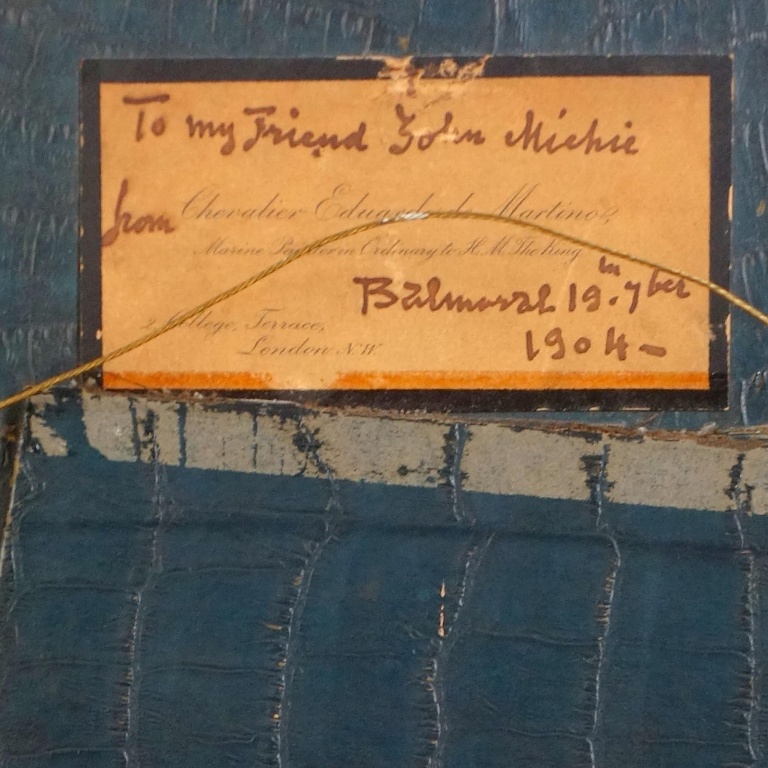 To my Friend John Michie
from Chevalier Eduardo de Martino,
Marine Painter in Ordinary to H.M. The King
Balmoral 19.th 7ber
2, College Terrace,
1904-
London N.W.